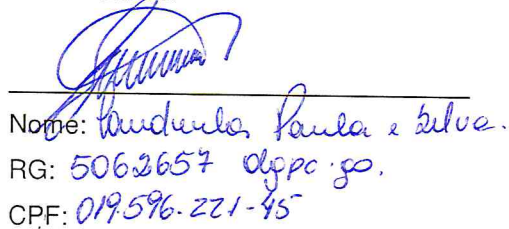 Nome: Paula e Silva.
RG: 5062657 dgpc.go.
CPF: 019.596.221-45